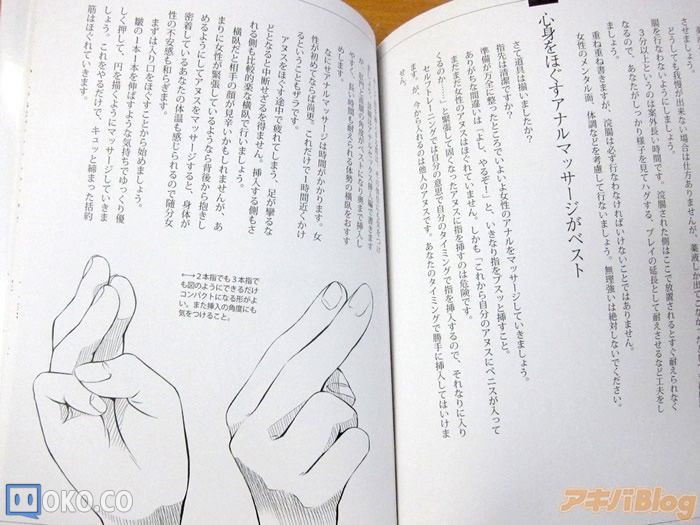 どうしても我慢が出来ない場合は仕方ありませんが、薬液
腸を行わないようにしましょう。
3分以上というのは案外長い時間です。浣腸された側はここで放置されるとすぐ耐えられなく
なるので、あなたがしっかり様子を見てハグする、プレイの延長として耐えさせるなど工夫をし
重ね重ね書きますが、浣腸は必ず行なわなければいけないことではありません。
女性のメンタル面、体調などを考慮して行ないましょう。無理強いは絶対しないでください。
心身をほぐすアナルマッサージがベスト
さて道具は揃いましたか?
指先は清潔ですか?
準備が万全に整ったところでいよいよ女性のアナルをマッサージしていきましょう。
ありがちな間違いは「よし、やるぞー!」と、いきなり指をブスッと挿すこと。
まだまだ女性のアヌスはほぐれていません。しかも「これから自分のアヌスにペニスが入って
くるのか……」と緊張して固くなったアヌスに指を挿すのは危険です。
セルフトレーニングでは自分の意思で自分のタイミングで指を挿入するので、それなりに入り
ますが、今から入れるのは他人のアヌスです。あなたのタイミングで勝手に挿入してはいけま
せん。
めします。
なにせアナルマッサージは時間がかかります。女
性が初めてならば尚更。これだけで1時間近くかけ
るということもザラです。
アヌスをほぐす途中で疲れてしまう、足が攣るな
どとなると中断せざるを得ません。挿入する側もさ
れる側も比較的楽な横臥で行いましょう。
横臥だと相手の顔が見辛いかもしれませんが、あ
まりに女性が緊張しているようなら背後から抱きし
めるようにしてアヌスをマッサージすると、身体が
密着しているあなたの体温も感じられるので随分女
性の不安感も和らぎます。
まずは入り口をほぐすことから始めましょう。
皺の1本1本を伸ばすような気持ちでゆっくり優
しく押して、円を描くようにマッサージしていきま
しょう。これをやるだけで、キュッと締まった括約
筋はほぐれていきます。
⟷2本指でも3本指で
も図のようにできるだけ
コンパクトになる形がよ
い。また挿入の角度にも
気をつけること。
MOKO.CO
アキバBlog